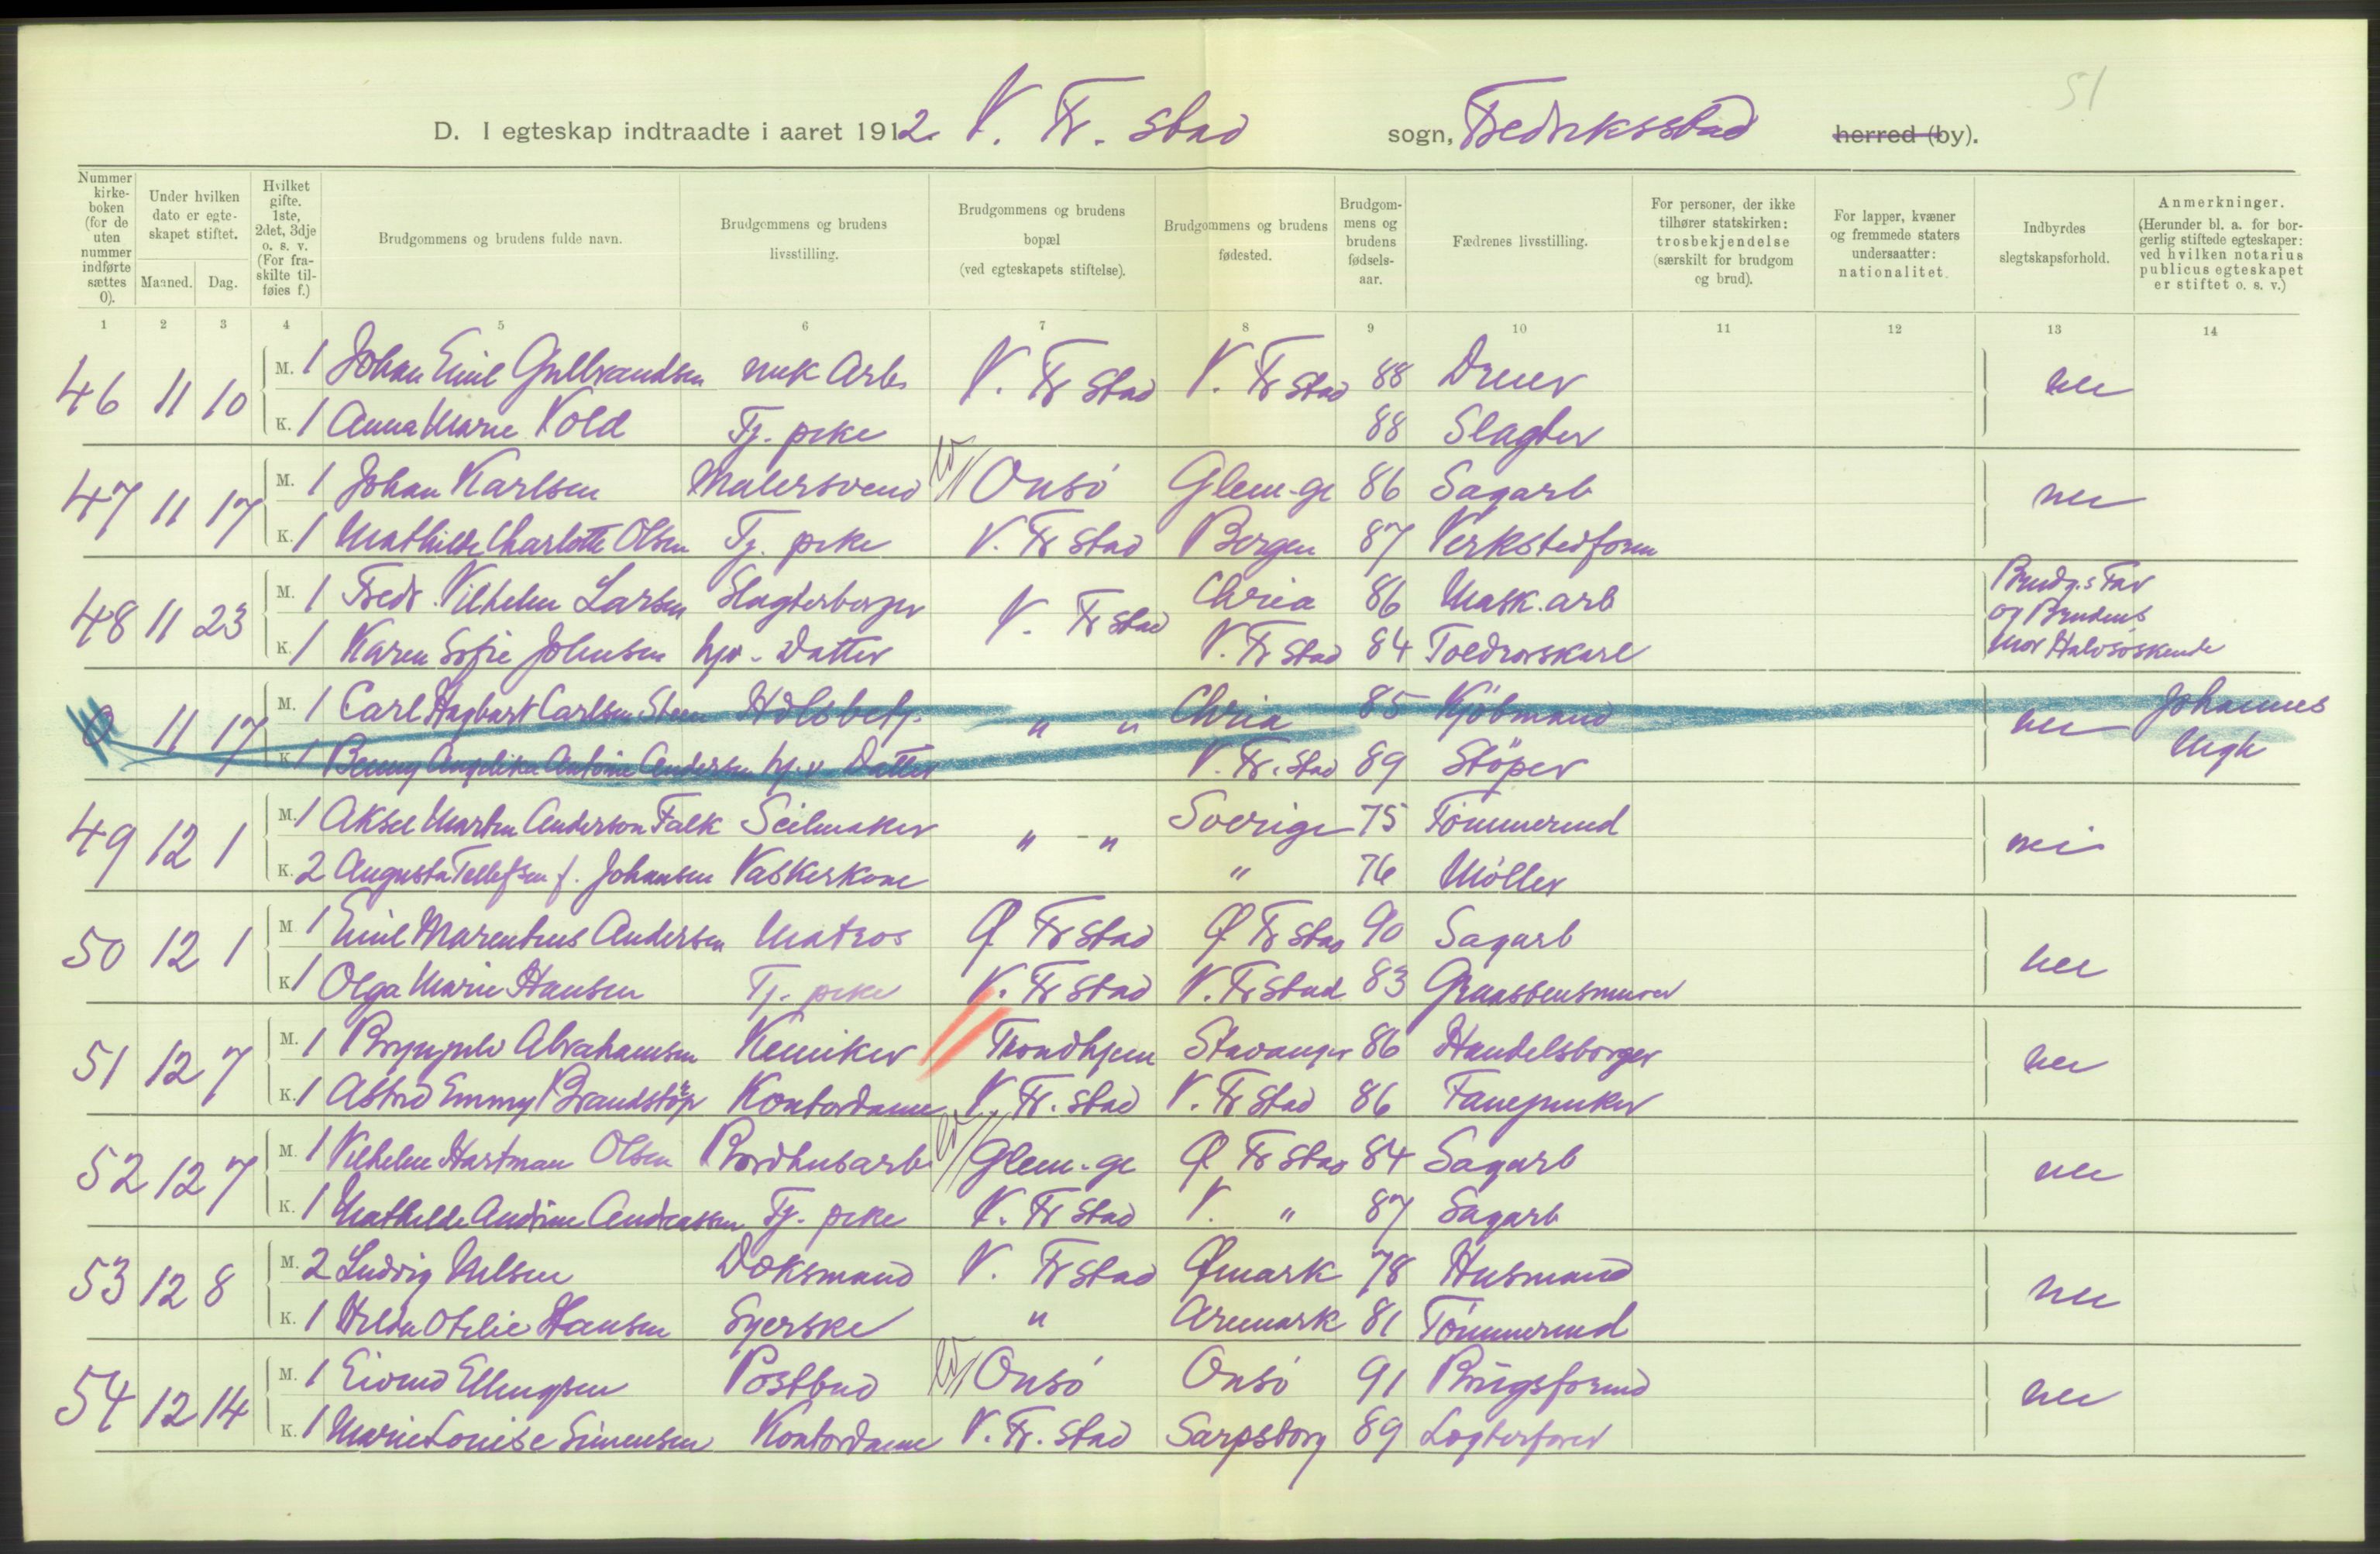 51
D. I egteskap indtraadte i aaret 1912. V. Fr. stad sogn, Fredriksstad herred (by).
Nummer kirke-boken (for de uten nummer indførte sættes 0).
Under hvilken dato er egte-skapet stiftet.
Maaned. Dag.
Hvilket gifte. 1ste, 2det, 3dje o. s. v. (For fra-skilte til-føies f.)
Brudgommens og brudens fulde navn.
Brudgommens og brudens livsstilling.
Brudgommens og brudens bopæl (ved egteskapets stiftelse).
Brudgommens og brudens fødested.
Brudgom-mens og brudens fødsels-aar.
Fædrenes livsstilling.
For personer, der ikke tilhører statskirken: trosbekjendelse (særskilt for brudgom og brud).
For lapper, kvæner og fremmede staters undersaatter: nationalitet.
Indbyrdes slegtskapsforhold.
Anmerkninger. (Herunder bl. a. for bor-gerlig stiftede egteskaper: ved hvilken notarius publicus egteskapet er stiftet o. s. v.)
1 2 3 4 5 6 7 8 9 10 11 12 13 14
46 11 10 M. 1 Johan Emil Gulbrandsen mek Arb. V. Fr stad V. Fr stad 88 Dreier nei
K. 1 Anna Marie Vold Tj. pike 88 Slagter
47 11 17 M. 1 Johan Karlsen Malersvend Onsö Glem-ge 86 Sagarb nei
K. 1 Mathilde Charlotte Olsen Tj. pike V. Fr stad Bergen 87 Verkstedform
48 11 23 M. 1 Fredr. Vilhelm Larsen Slagterborger V. Fr stad Chria 86 Mask. arb Brudg.s Far og Brudens Mor Halvsöskende
K. 1 Karen Sofie Johnsen hjv. Datter V. Fr stad 84 Toldrorskarl
0 11 17 M. 1 Carl Hagbart Carlsen Steen " " Chria 85 Kjöbmand nei Johannes
K. 1 Benny Angelika Antonie Andersen hj.v Datter V. Fr. stad 89 Stöper
49 12 1 M. 1 Aksel Martin Anderson Falk Seilmaker " - " Sverige 75 Tömmermd nei
K. 2 Augusta Tellefsen f. Johansen Vaskerkone " 76 Möller
50 12 1 M 1 Emil Marentius Andersen Matros Ø Fr stad Ø Fr stad 90 Sagarb nei
K 1 Olga Marie Hansen Tj. pike V. Fr stad V. Fr stad 83 Graastensmurer
51 12 7 M. 1 Brynjulv Abrahamsen Kemiker Trondhjem Stavanger 86 Handelsborger nei
K. 1 Astrid Emmy Brandstöp Kontordame V. Fr. stad V. Fr stad 86 Fanejunker
52 12 7 M. 1 Vilhelm Hartman Olsen Bordhusarb Glem-ge Ø Fr stad 84 Sagarb nei
K. 1 Mathilde Andrine Andreassen Tj. pike V. Fr stad V. " 87 Sagarb
53 12 8 M. 2 Ludvig Nilsen Doksmand V. Fr stad Ømark 78 Husmand nei
K. 1 Hilda Otelie Hansen Syerske " Aremark 81 Tömmermd
54 12 14 M. 1 Eivind Ellingsen Postbud Onsö Onsö 91 Brugsformd nei
K. 1 Marie Louise Simensen Kontordame V. Fr. stad Sarpsborg 89 Logterforer